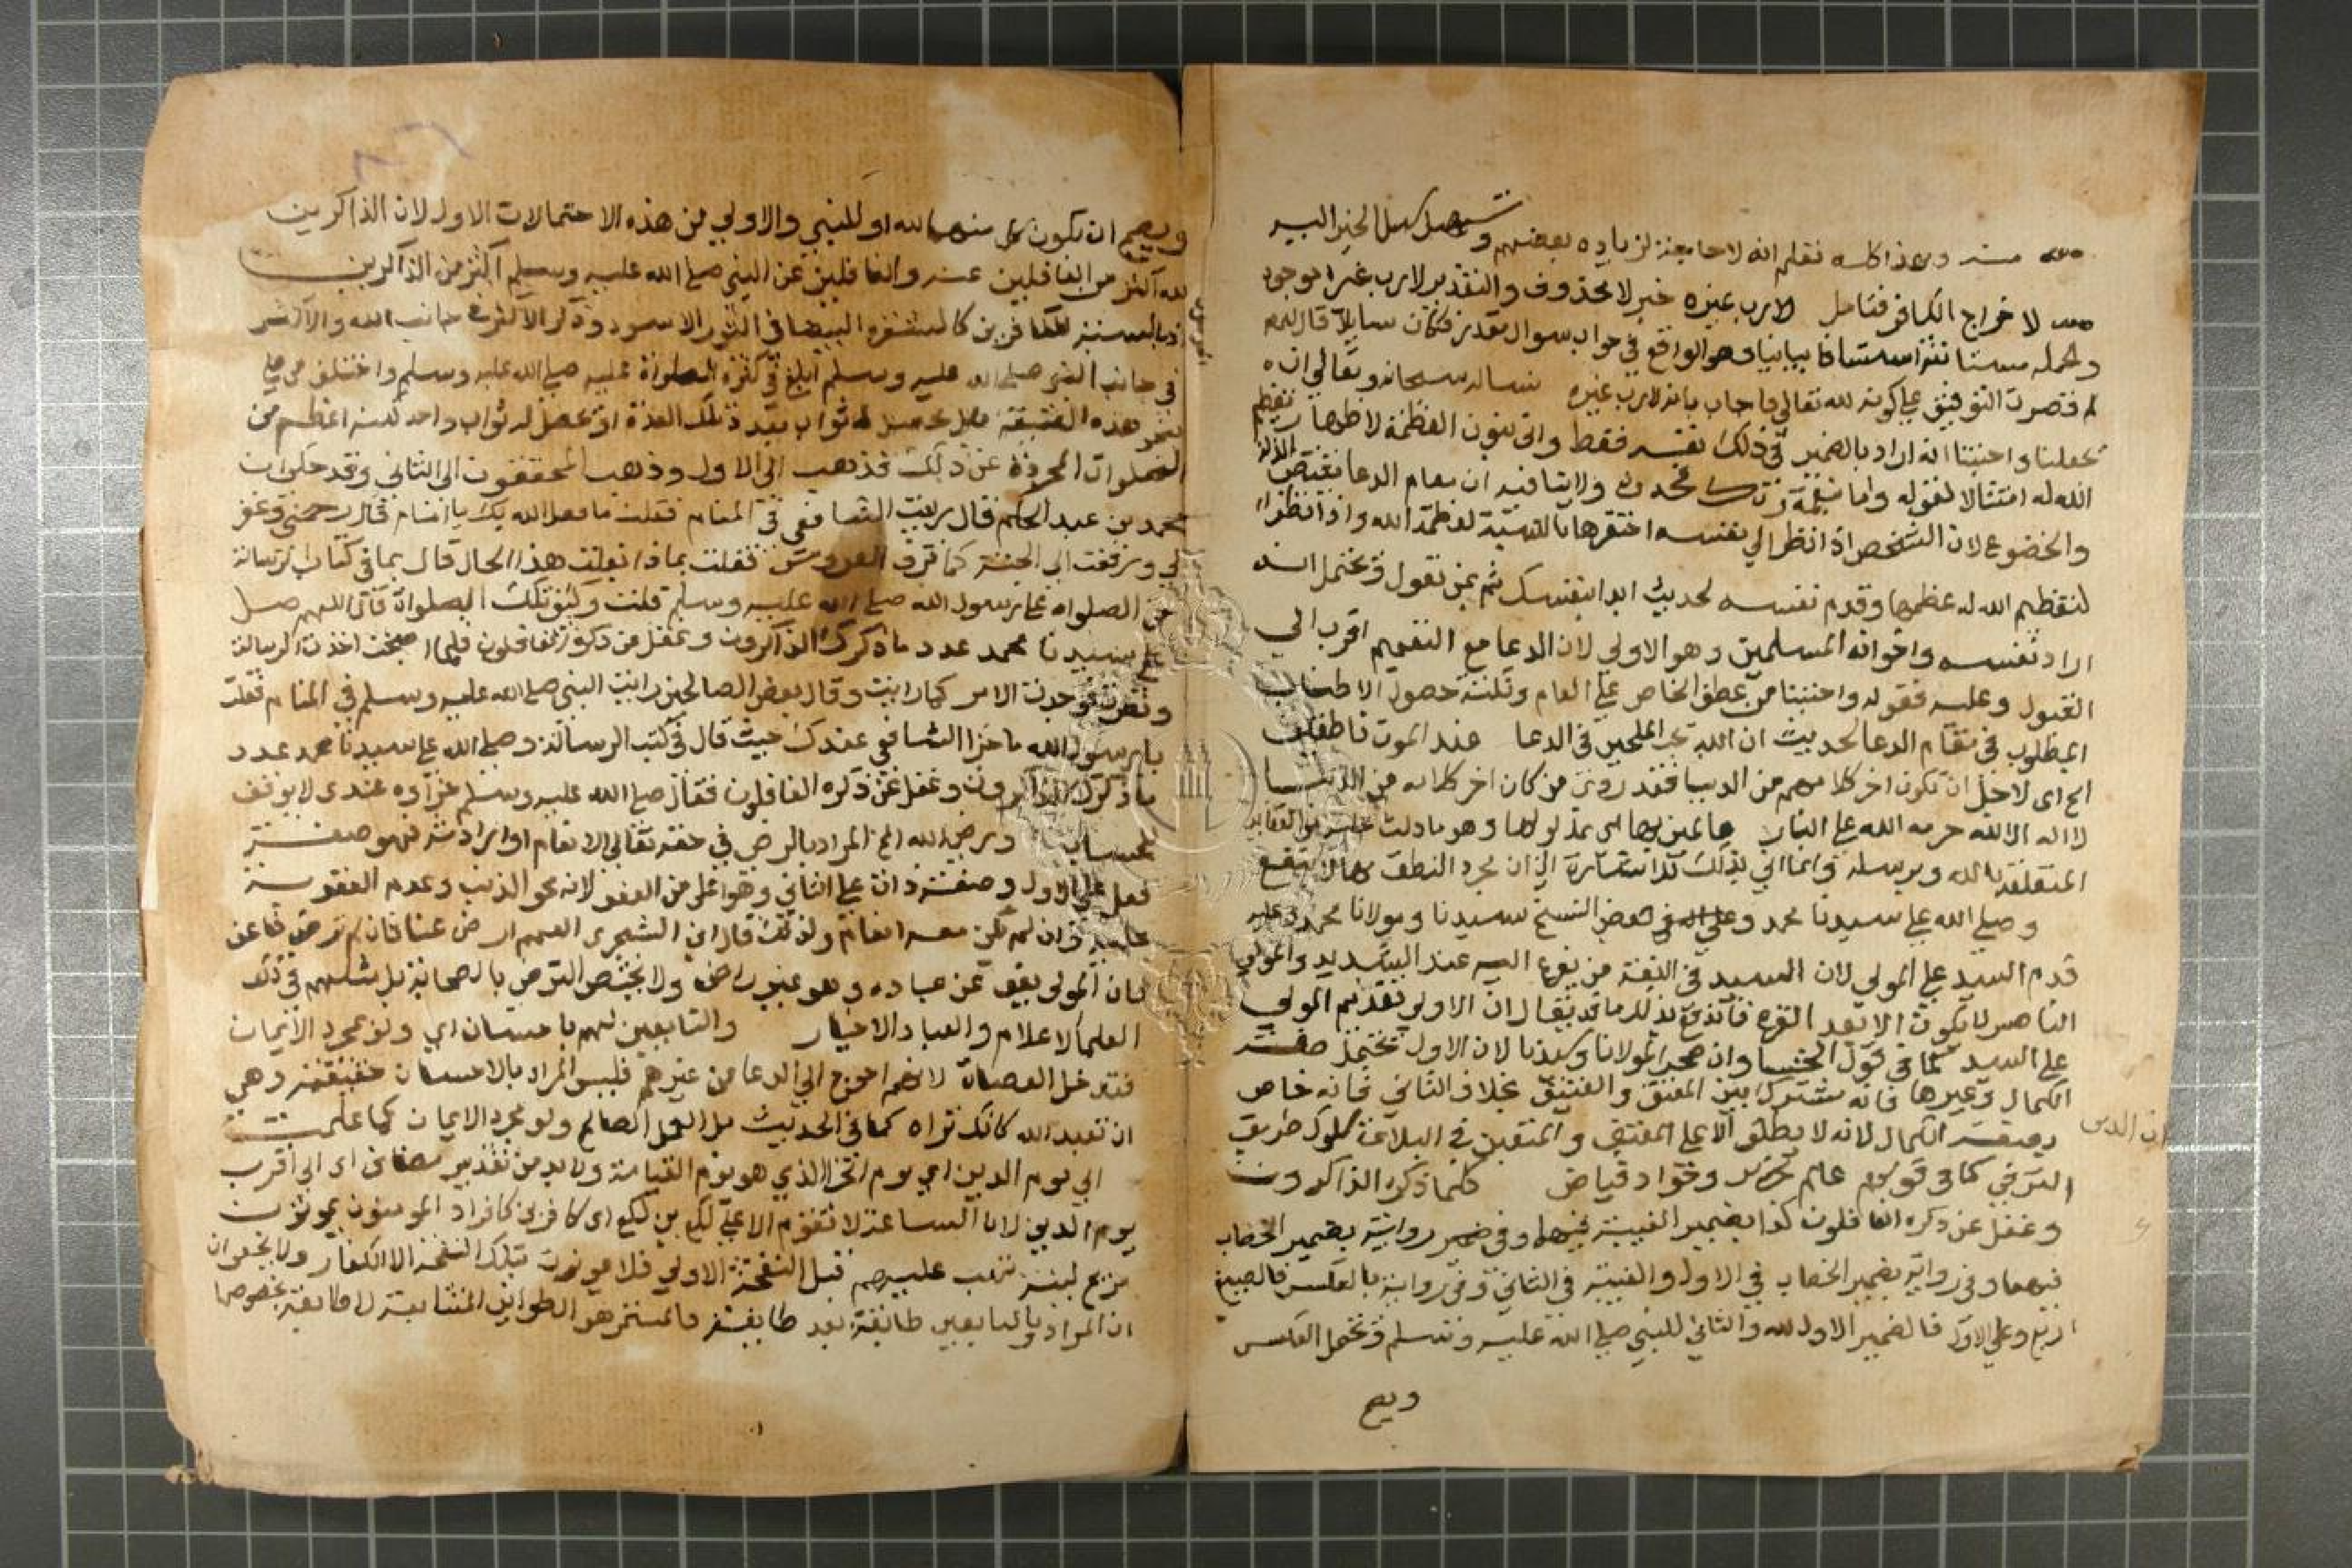 وبعد هذا كله فقلم انه لا جامعة لزياده بعضهم وتسهيل كل الخير اليه
لاخراج الكافر فتامل لا رب غيره خبر لا محذوف والتقدير لا رب غيره موجود
وجمله مستانفة استنافا بيانيا وهو الواقع في جواب سوال مقدر فكان سايلا قال له لم
لم قصرت التوفيق على كونه لله تعالى فاجاب بانه لا رب غيره نساله سبحانه وتعالى ان
يجعلنا واحبتنا انه اراد بالضمير في ذلك نفسه فقط واتى بنون العظمة لاظهار تعظيم
الله له امتثالا لقوله واما بنعمة ربك فحدث ولا ينافيه ان مقام الدعا يقتضي الذلة
والخضوع لان الشخص اذا نظر الى نفسه احتقرها بالنسبة لعظمة الله واذا نظر
لتعظيم الله له عظمها وقدم نفسه لحديث ابدا بنفسك ثم بمن تعول ويحتمل انه
اراد نفسه واخوانه المسلمين وهو الاولي لان الدعا مع التعميم اقرب الي
القبول وعليه فقوله واحبتنا من عطف الخاص على العام ونكتته حصول الاطناب
المطلوب في مقام الدعا لحديث ان الله يحب الملحين في الدعا عند الموت ناطقين
الخ اي لاجل ان تكون اخر كلامهم من الدنيا فقد روي من كان اخر كلامه من الدنيا
لا اله الا الله حرمه الله على النار عالمين بها اي بمدلولها وهو ما دلت عليه من العقايد
المتعلقة بالله وبرسله وانما اتي بذلك للاشارة الي ان مجرد النطق بها لا ينفع
وصلى الله على سيدنا محمد وعلى اله في بعض النسخ سيدنا ومولانا محمد وعليه
قدم السيد على المولى لان السيد في اللغة من يفزع اليه عند الشدايد والمولى
الناصر ولا يكون الا بعد الفزع فاندفع بذلك ما قد يقال ان الاولى تقديم المولى
على السيد كما في قول الخنسا وان صخرا لمولانا وسيدنا لان الاول يحتمل صفة
الكمال وغيرها فانه مشترك بين المعتق والعتيق بخلاف الثاني فانه خاص
بصفة الكمال لانه لا يطلق الا على المعتق والمتقين في البلاغة سلوك طريق
الترقي كما في قولهم عالم نحرير وجواد فياض كلما ذكره الذاكرون
وغفل عن ذكره الغافلون كذا بضمير الغيبة فيهما وفي رواية بضمير الخطاب
فيهما وفي رواية بضمير الخطاب في الاول والغيبة في الثاني وفي رواية بالعكس فالصيغ
اربع وعلى الاول فالضمير الاول لله والثاني للنبي صلى الله عليه وسلم ويحتمل العكس
ويصح
ويصح ان يكون كل منهما لله او للنبي والاولى من هذه الاحتمالات الاول لان الذاكرين
لله اكثر من الغافلين عنه والغافلين عن النبي صلى الله عليه وسلم اكثر من الذاكرين
بالنسبة للكافرين كالشعره البيضا في الثور الاسود وذكر الاكثر في جانب الله والاكثر
في جانب النبي صلى الله عليه وسلم ابلغ في كثرة الصلاة عليه صلى الله عليه وسلم واختلف من صلى
بنحو هذه الصيغة هل يحصل له ثواب بقدر ذلك العدد او يحصل له ثواب واحد لكنه اعظم من
الصلوات المجردة عن ذلك فذهب الى الاول وذهب المحققون الى الثاني وقد حكي ان
محمد بن عبد الحكم قال رايت الشافعي في المنام فقلت ما فعل الله بك يا امام قال رحمني وغفر
لي وزففت الى الجنة كما تزف العروس فقلت بماذا بلغت هذا الحال قال بما في كتاب الرسالة
من الصلواة على رسول الله صلى الله عليه وسلم قلت وكيف تلك الصلواة قال اللهم صل
على سيدنا محمد عدد ما ذكرك الذاكرون وغفل عن ذكره الغافلون فلما اصبحت اخذت الرسالة
ونظرت فوجدت الامر كما رايت وقال بعض الصالحين رايت النبي صلى الله عليه وسلم في المنام فقلت
يا رسول الله ما جزا الشافعي عندك حيث قال في كتب الرسالة وصلى الله على سيدنا محمد عدد
ما ذكرك الذاكرون وغفل عن ذكره الغافلون فقال صلى الله عليه وسلم جزاوه عندي لا يوقف
للحساب ورضي الله الخ المراد بالرضى في حقه تعالى الانعام او ارادته فهو صفة
فعل على الاول وصفة ذات على الثاني وهو اعلى من العفو لانه محو الذنب وعدم العقوبة
عليه وان لم يكن معه انعام ولذلك قال ابن الشجري اللهم ارض عنا فان لم ترض فاعف
فان المولى يعفو عن عباده وهو غير راض ولا يختص الترضي بالصحابة بل يشملهم في ذلك
العلما الاعلام والعباد الاخيار والتابعين لهم باحسان اي ولو بمجرد الايمان
فتدخل العصاة لانهم احوج الى الدعا من غيرهم فليس المراد بالاحسان حقيقته وهي
ان تعبد الله كانك تراه كما في الحديث بل العمل الصالح ولو مجرد الايمان كما علمت
الي يوم الدين اي يوم الجزا الذي هو يوم القيامة ولا بد من تقدير مضاف اي الى اقرب
يوم الدين لان الساعة لا تقوم الا على لكع بن لكع اي كافر بن كافر اذ المومنون يموتون
بريح لينة تهب عليهم قبل النفخة الاولى فلا يموت بتلك النفخة الا الكفار ولا يخفى ان
ان المراد بالتابعين طائفة بعد طايفة فالمستمر هو الطوايف المتتابعة لا طايفة بخصوصها